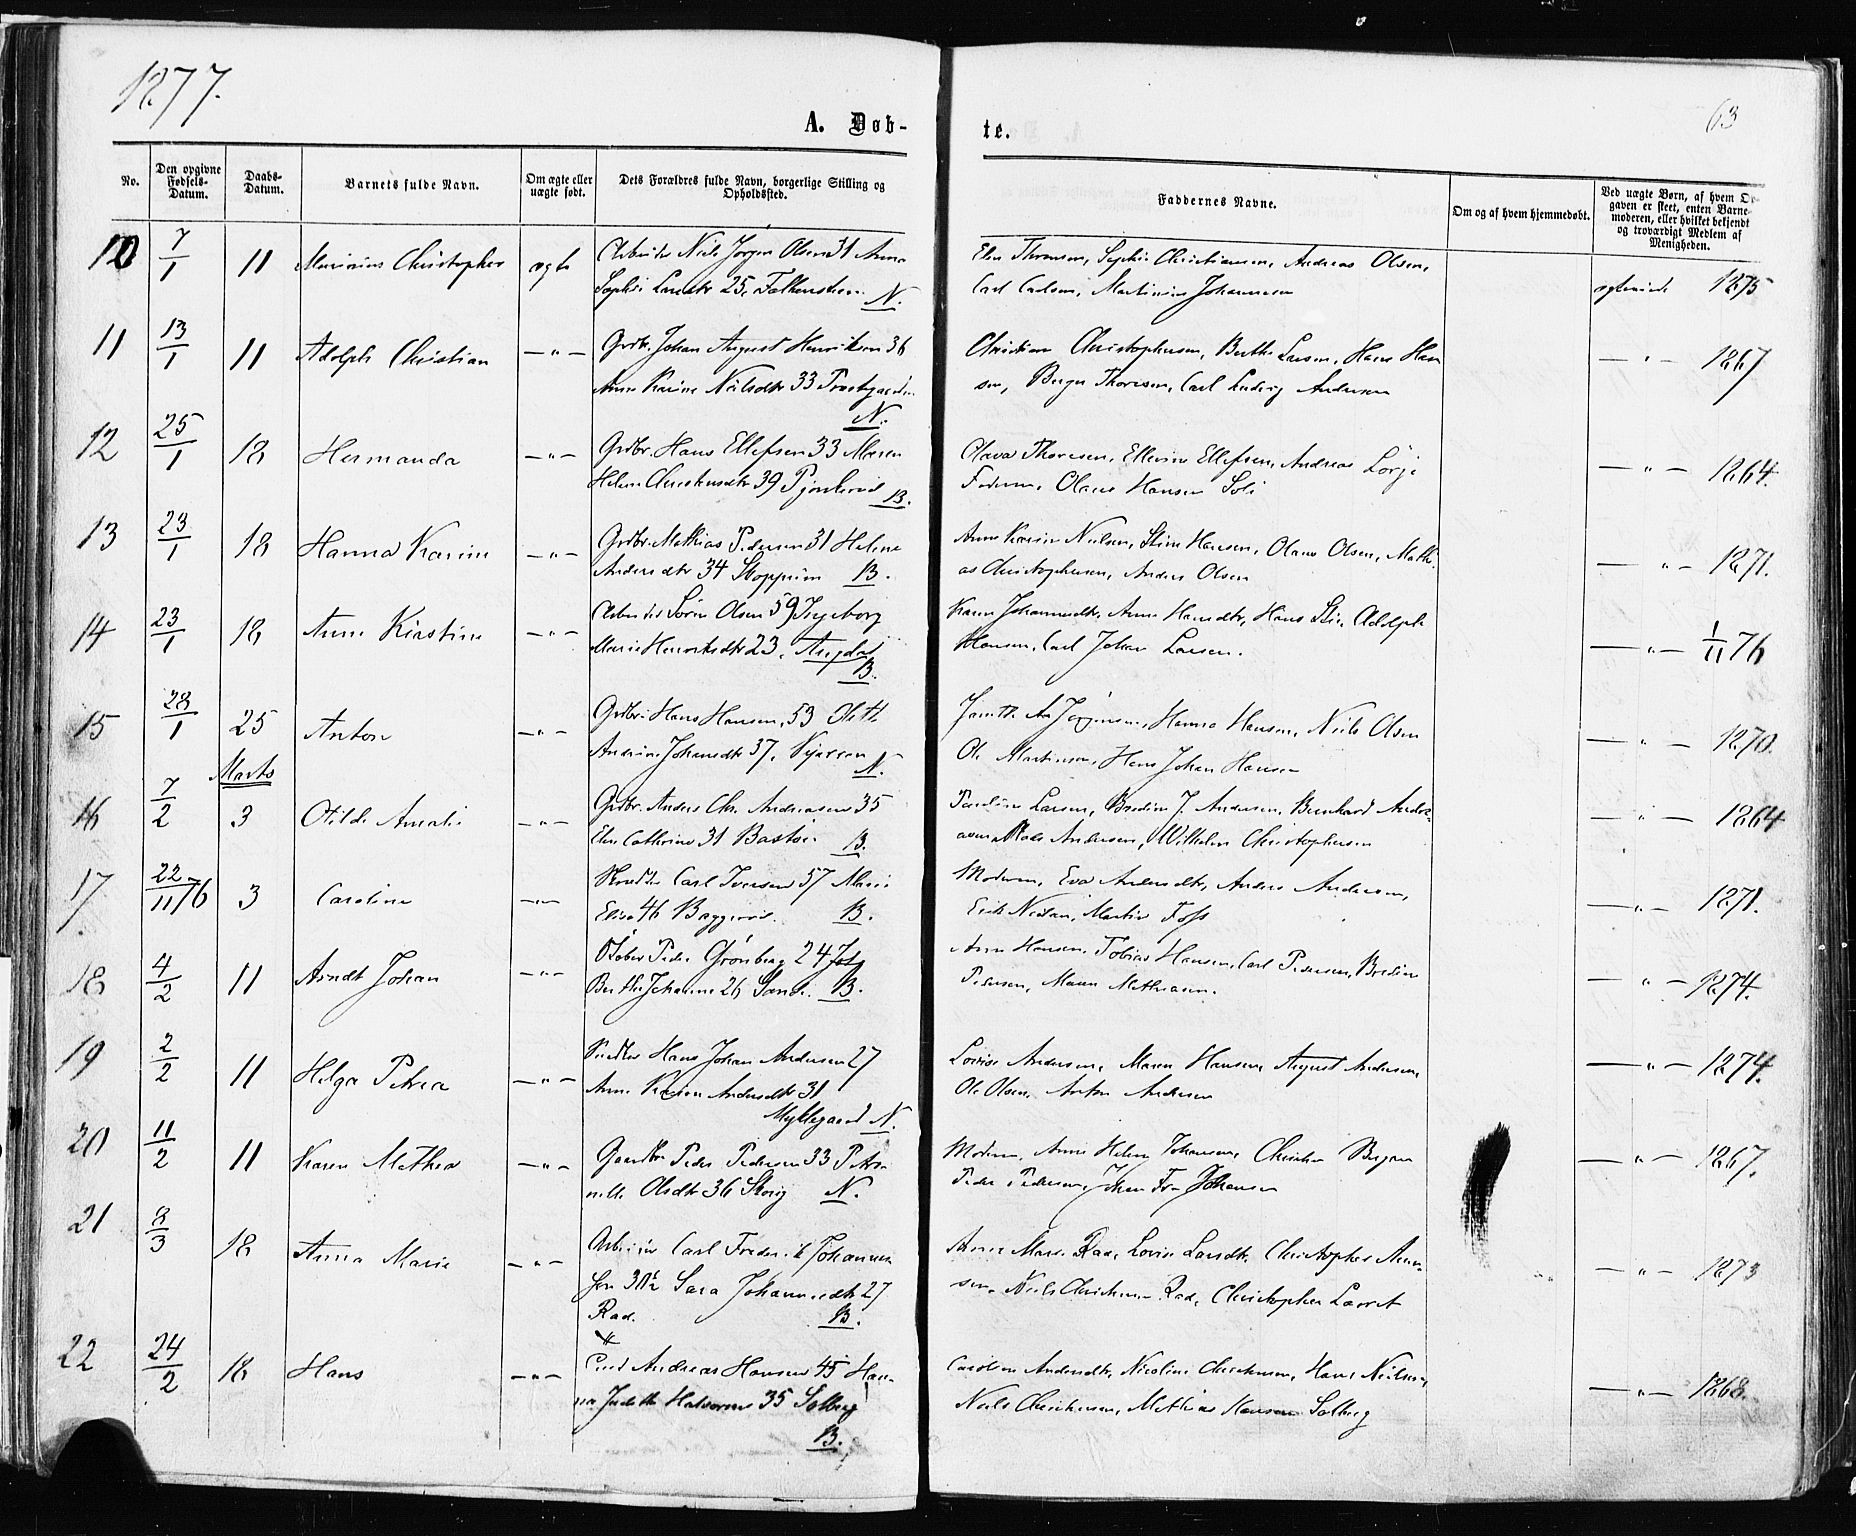 1877.
63
A. Døb-
te.
No.
Den opgivne Fødsels-Datum.
Daabs-Datum.
Barnets fulde Navn.
Om ægte eller uægte født.
Dets Forældres fulde Navn, borgerlige Stilling og Opholdssted.
Faddernes Navne.
Om og af hvem hjemmedøbt.
Ved uægte Børn, af hvem Op-
gaven er skeet, enten Barne-
moderen, eller hvilket bekjendt
og troværdigt Medlem af
Menigheden.
10 7/1 11 Marinius Christopher ægte
Arbeider Niels Jørgen Olsen 31 Anna
Sophie Larsdtr 25, Falkensteen N.
Elen Thoresen, Sophie Christiansen, Andreas Olsen,
Carl Carlsen, Martinius Johannesen
1875
11 13/1 11 Adolph Christian —"—
Grdbr. Johan August Henriksen 36
Anne Karine Nilsdtr 33 Præstgaarden
N.
Christian Christophersen, Berthe Larsen, Hans Han
sen, Berger Thoresen, Carl Ludvig Andersen
—"— 1867
12 25/1 18 Hermanda —"—
Grdbr. Hans Ellefsen 33 Maren
Helene 39 B.
Olava Thoresen, Ellevine Ellefsen, Andreas
Olaus Hansen
—"— 1864.
13 23/1 18 Hanna Karine —"—
Grdbr. Mathias Pedersen 31 Helene
Andersdtr 34 Stoppum B.
Anne Karine Nielsen, Stine Hansen, Olaus Olsen, Mathi
as Christophersen, Anders Olsen
—"— 1871.
14 23/1 18 Anne Kirstine —"—
Arbeider Søren Olsen 59 Ingeborg
Marie Henriksdtr 23, Augdal
B.
Karen Johannesdtr, Anne Hansdtr, Hans Adolph
Hansen, Carl Johan Larsen.
—"— 1/11 76
15 28/1 25 Anton —"—
Grdbr. Hans Hansen, 53 Oleth
Andrine Johansdtr 37, N.
Hanna Hansen, Niels Olsen
Ole Martinsen, Hans Johan Hansen
—"— 1870.
Marts
16 7/2 3 Otilde Amalie —"—
Grdbr. Anders Chr. Andreasen 35
Elen Cathrine 31 Bastøe B.
Pauline Larsen, Bredine J. Andersen, Bernhard Andre-
asen, Mads Andersen, Wilhelm Christophersen
—"— 1864
17. 22/11 76 3 Caroline —"—
Carl Iversen 57 Marie
Elise 46 Baggerød. B.
Moderen, Eva Andersdtr, Anders Andersen,
Erik Nielsen, Martin Foss
—"— 1871.
18 4/2 11 Arndt Johan —"—
Peder Grønberg 24
Berthe Johanne 26 Sande. B.
Anne Hansen, Tobias Hansen, Carl Pedersen, Bredine
Pedersen, Maren Mathiasen.
—"— 1874.
19 2/2 11 Helga Petrea —"—
Hans Johan Andersen 27
Anne Karine Andersdtr 31
Myklegaard N.
Lovise Andersen, Maren Hansen, August Andersen,
Ole Olsen, Anton Andersen
—"— 1874.
20 11/2 11 Karen Mathea —"—
Gaardbr. Peder Pedersen 33 Petro-
nelle Olsdtr 36 Skorg N.
Moderen, Anne Helene Johansen, Christian Bergan
Peder Pedersen, Johan Fr. Johansen
—"— 1867.
21 8/3 18 Anna Marie —"—
Arbeider Carl Frederik Johannes
sen 30½ Sara Johannesdtr 27
Rad. B.
Anne Marie Rad, Lovise Larsdtr, Christopher
sen, Niels Christensen Rad, Christopher
—"— 1873
22 24/2 18 Hans —"—
Andreas Hansen 45 Han-
na Judithe Halvorsen 35 Solberg
B.
Caroline Andersdtr, Nicoline Christensen, Hans Nielsen,
Niels Christensen, Mathias Hansen Solberg
—"— 1868.